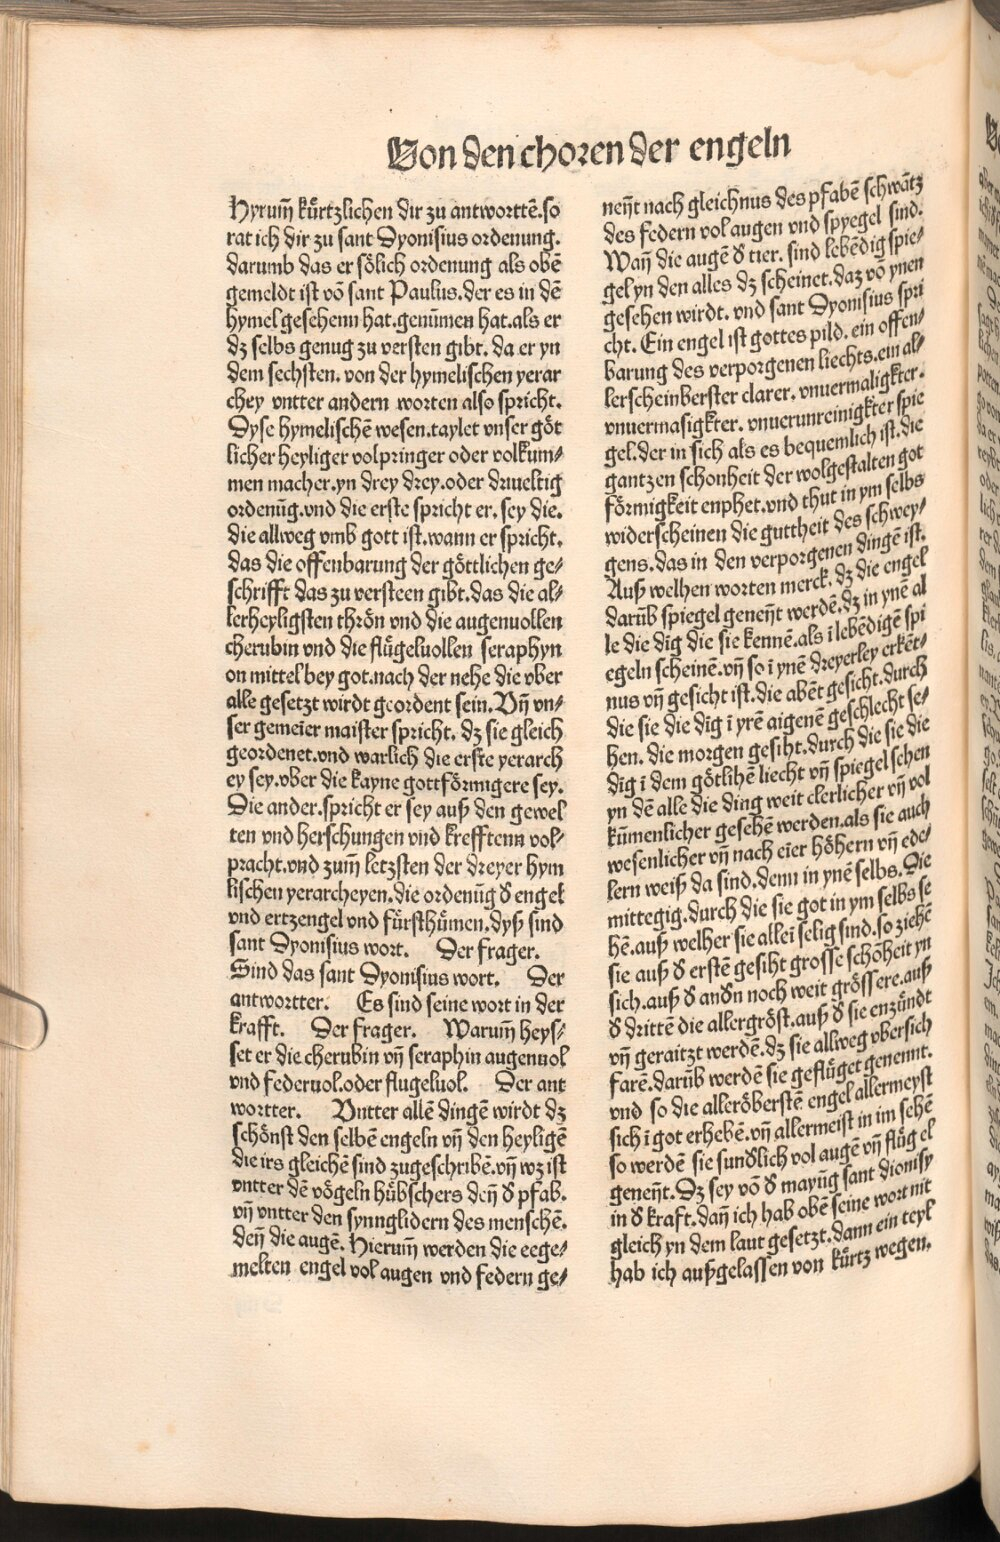 Von den choren der engeln
Hyrum̄ kürtzlichen dir zu antworttē.so
rat ich dir zu sant Dyonisius ordenung.
darumb das er sölich ordenung als obē
gemeldt ist vō sant Paulus.der es in dē
hymel gesehenn hat.genūmen hat.als er
dz selbs genug zu versten gibt. da er yn
dem sechsten. von der hymelischen yerar
chey vntter andern worten also spricht.
Dyse hymelischē wesen.taylet vnser göt
licher heyliger volpringer oder volkum⸗
men macher.yn drey drey.oder driueltig
ordenūg.vnd die erste spricht er. sey die.
die allweg vmb gott ist.wann er spricht.
das die offenbarung der göttlichen ge⸗
schrifft das zu versteen gibt.das die al⸗
lerheyligsten thrön vnd die augenuollen
cherubin vnd die flügeluollen seraphyn
on mittel bey got.nach der nehe die vber
alle gesetzt wirdt geordent sein. Vn̄ vn⸗
ser gemeīer maister spricht. dz sie gleich
geordenet.vnd warlich die erste yerarch
ey sey.vber die kayne gottförmigere sey.
Die ander.spricht er sey auß den gewel
ten vnd herschungen vnd krefftenn vol⸗
pracht.vnd zum̄ letzsten der dreyer hym
lischen yerarcheyen.die ordenūg ð engel
vnd ertzengel vnd fürsthümen.dyß sind
sant Dyonisius wort. Der frager.
Sind das sant Dyonisius wort. Der
antwortter. Es sind seine wort in der
krafft. Der frager. Warum̄ heys⸗
set er die cherubin vn̄ seraphin augenuol
vnd federuol.oder flugeluol. Der ant
wortter. Vntter allē dingē wirdt dz
schönst den selbē engeln vn̄ den heyligē
die irs gleichē sind zugeschribē.vn̄ wz ist
vntter dē vögeln hübschers den̄ ð pfab.
vn̄ vntter den synnglidern des menschē.
den̄ die augē. Hierum̄ werden die eege⸗
melten engel vol augen vnd federn ge⸗
nen̄t nach gleichnus des pfabē schwātz
des federn vol augen vnd spyegel sind.
Wan̄ die augē ð tier. sind lebēdig spie⸗
gel yn den alles dz scheinet.daz vō ynen
gesehen wirdt. vnd sant Dyonisius spri
cht. Ein engel ist gottes pild. ein offen⸗
barung des verporgenen liechts.ein al⸗
lerscheinberster clarer. vnuermaligkter.
vnuermasigkter. vnuerunreinigkter spie
gel.der in sich als es bequemlich ist.die
gantzen schonheit der wolgestalten got
förmigkeit enphet.vnd thut in ym selbs
widerscheinen die guttheit des schwey⸗
gens.das in den verporgenen dingē ist.
Auß welhen worten merck. dz die engel
darūb spiegel genen̄t werdē.dz in ynē al
le die dīg die sie kennē.als ī lebēdigē spi
egeln scheinē.vn̄ so ī ynē dreyerley erkēt⸗
nus vn̄ gesicht ist.die abēt gesicht.durch
die sie die dīg ī yrē aigenē geschlecht se⸗
hen. die morgen gesiht.durch die sie die
dīg ī dem götlihē liecht vn̄ spiegel sehen
yn dē alle die ding weit clerlicher vn̄ vol
kūmenlicher gesehē werden.als sie auch
wesenlicher vn̄ nach eīer höhern vn̄ ede⸗
lern weiß da sind.denn in ynē selbs. Die
mittegig.durch die sie got in ym selbs se
hē.auß welher sie alleī selig sind.so ziehē
sie auß ð erstē gesiht grosse schōheit yn
sich.auß ð andn noch weit grössere.auß
ð drittē die allergröst.auß ð sie enzündt
vn̄ geraitzt werdē.dz sie allweg vbersich
farē.darūb werdē sie geflüget genennt.
vnd so die alleröberstē engel allermeyst
sich ī got erhebē.vn̄ allermeist in im sehē
so werdē sie sunðlich vol augē vn̄ flüg el
genen̄t. Dz sey vō ð mayn̄g sant dionisy
in ð kraft.dan̄ ich hab obē seine wort nit
gleich yn dem laut gesetzt.dann ein teyl
hab ich außgelassen von kürtz wegen.